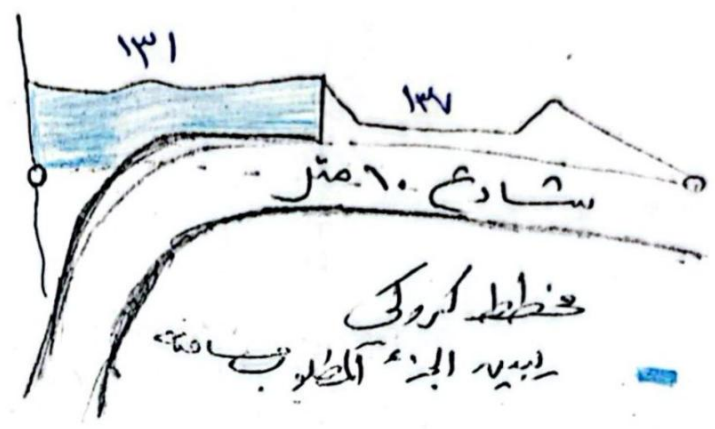 ١٣١
١٣٧
شارع ١٠ متر
مخطط كروكي
يبين الجزء المطلوب